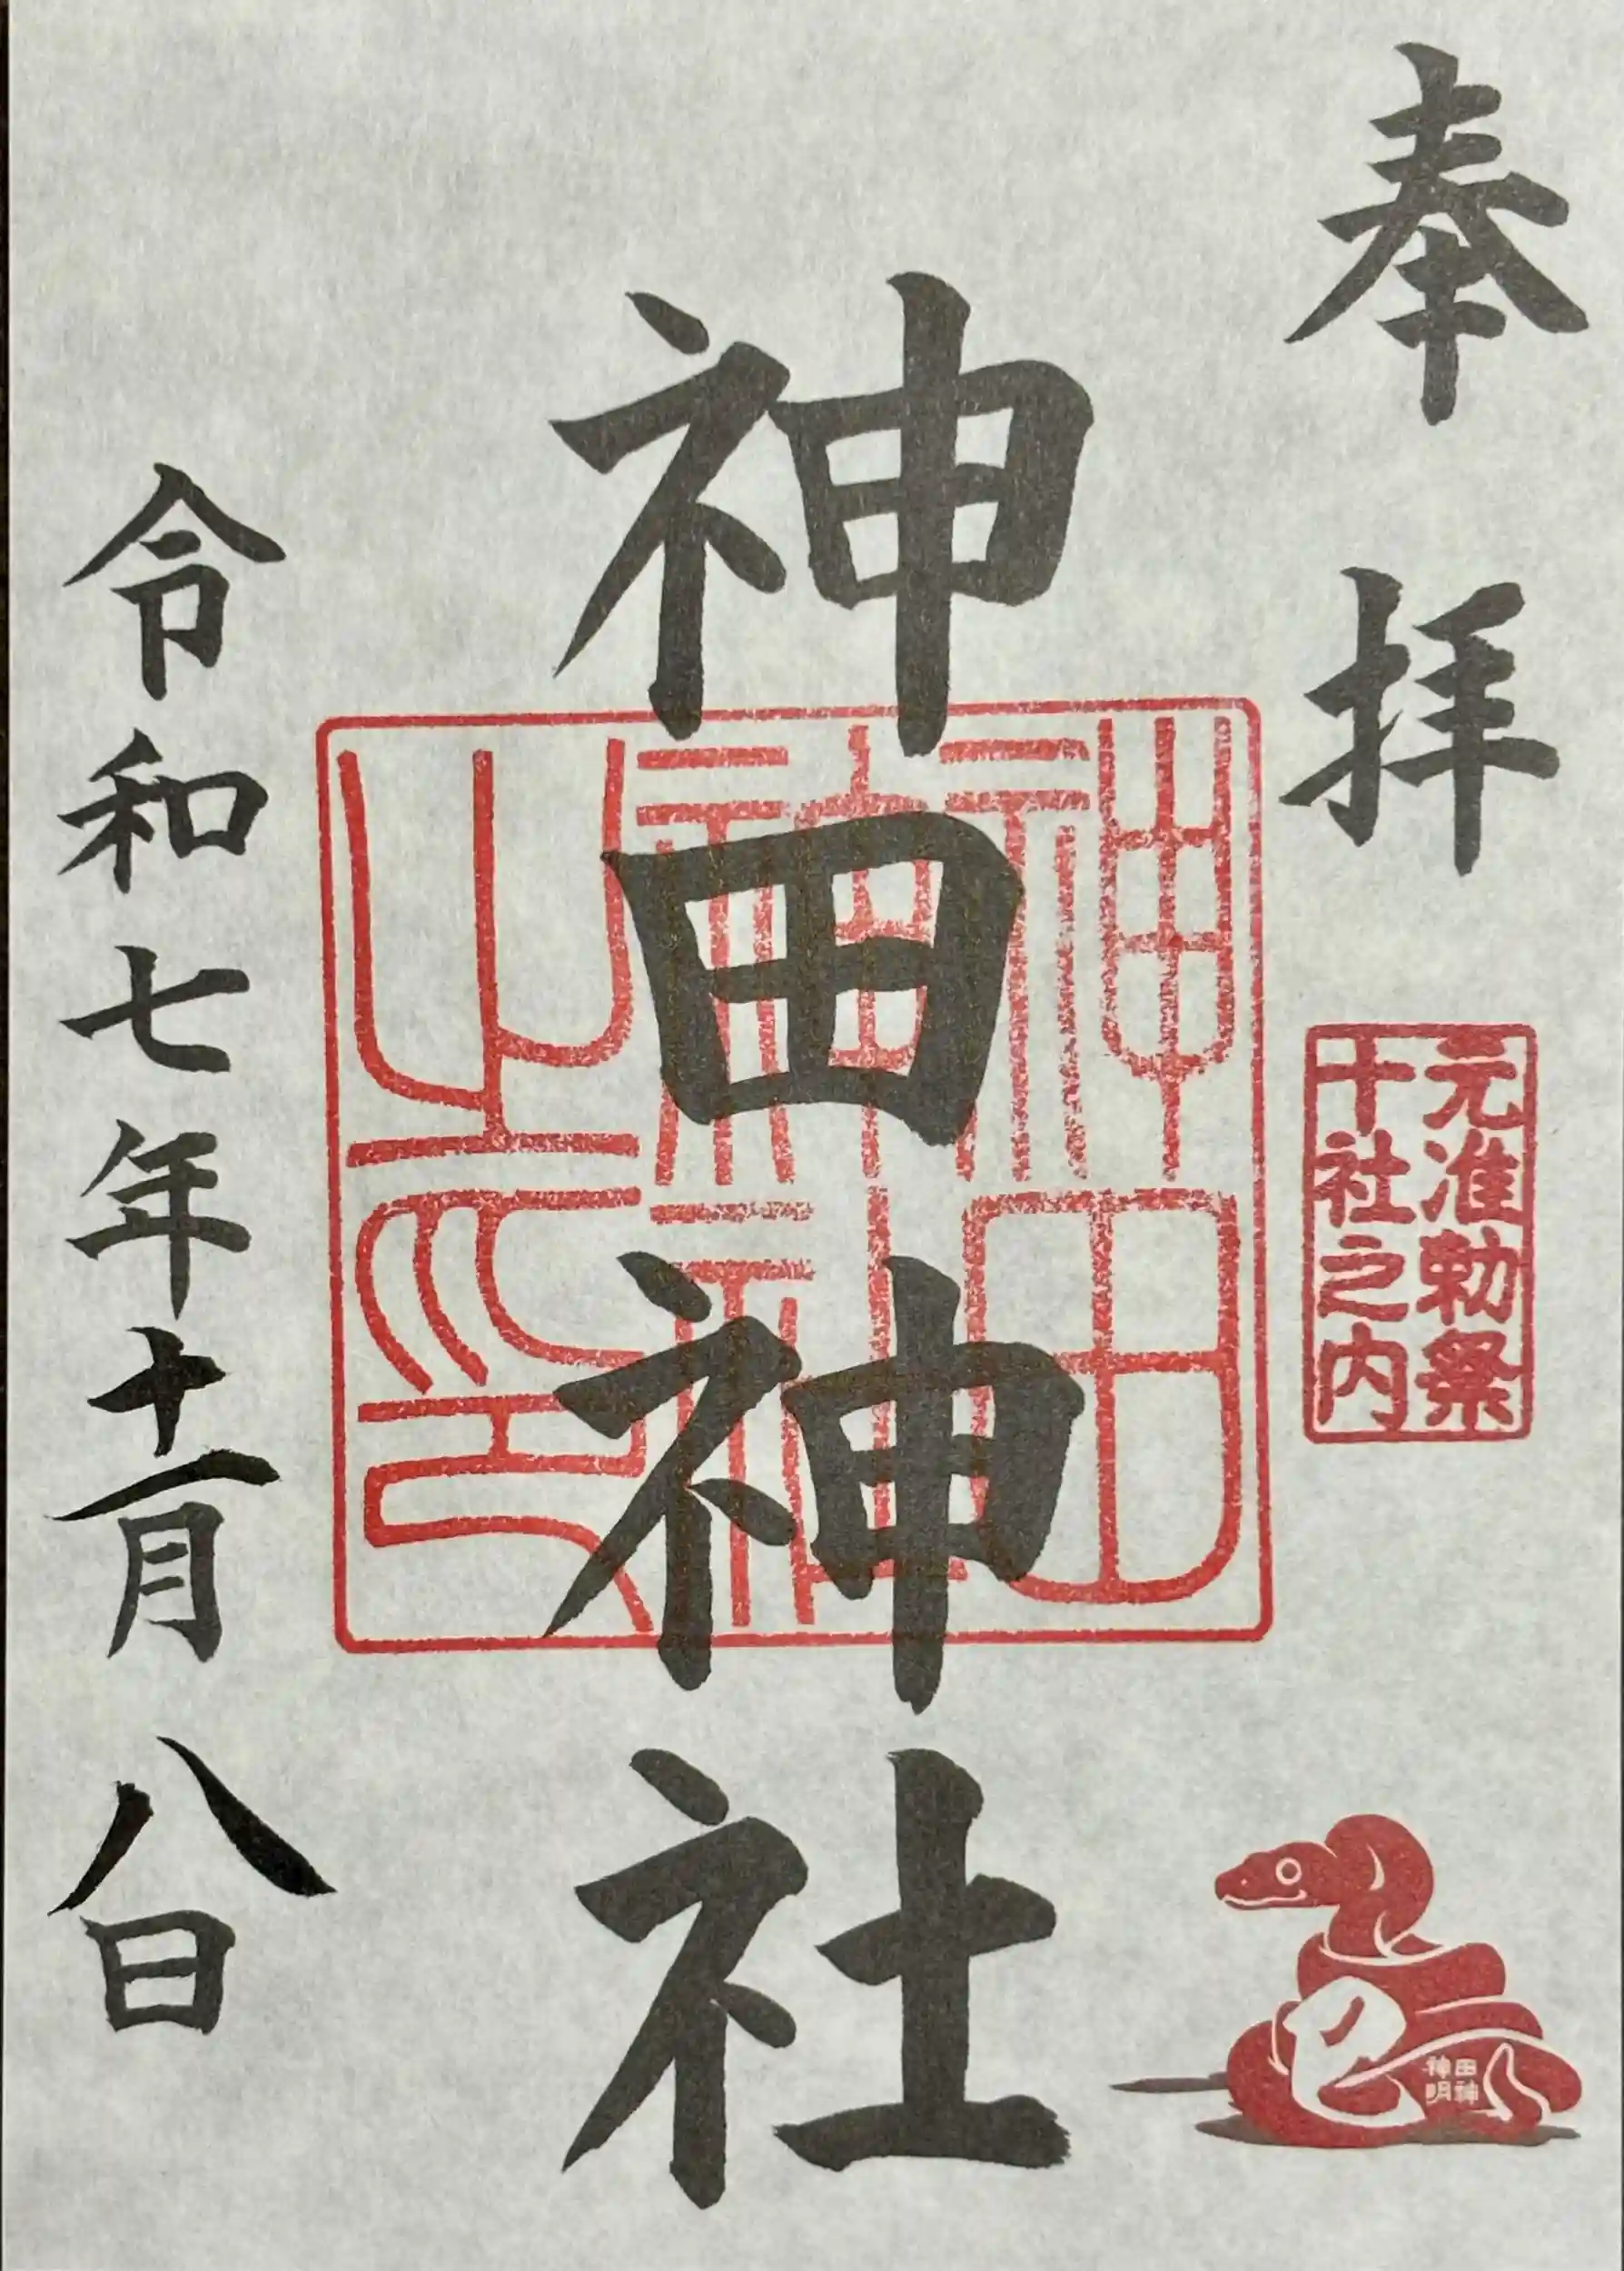 奉拝
元准勅祭
十社之内
巳
神田
明神
神田神社
神田
神社
之印
令和七年十一月八日